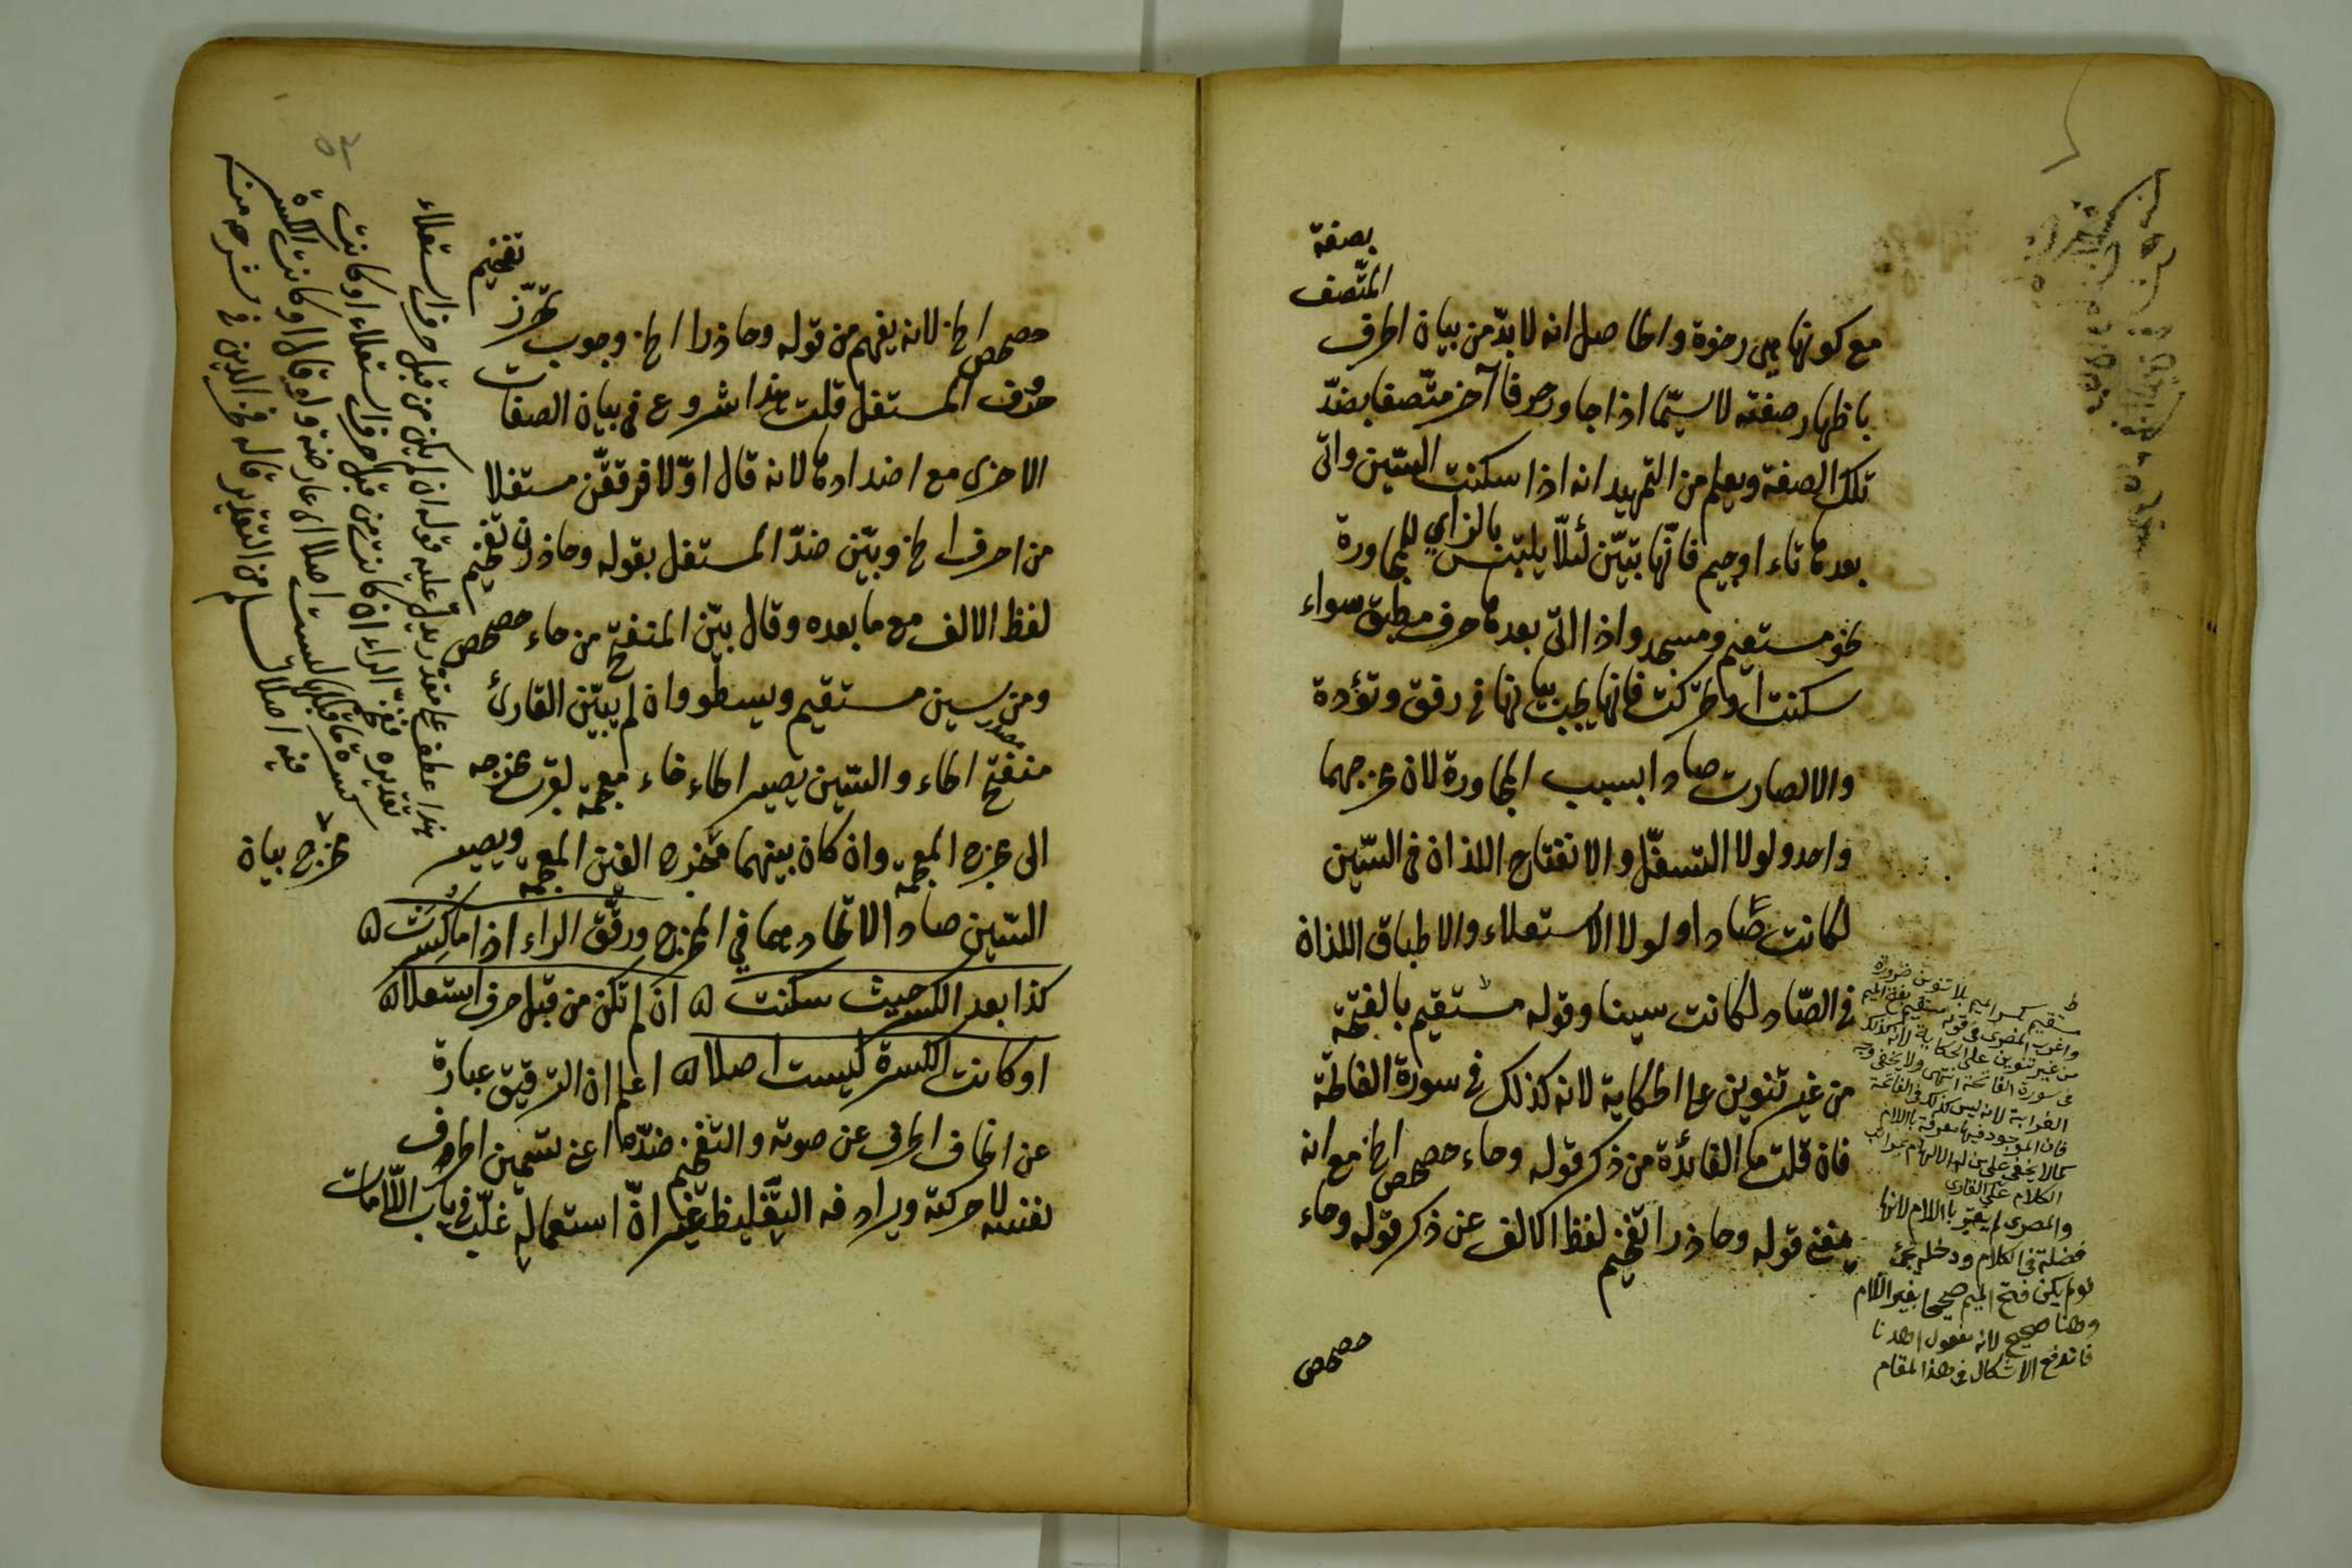 بصفة
المتصف
مع كونها هي رخوة والحاصل انه لا بدّ من بيان الحرف
باظهار صفته لا سيّما اذا جاور حرفا آخر متّصفا بضدّ
تلك الصفة ويعلم من التمهيد انه اذا سكنت السّين واتى
بعدها تاء او جيم فانّها تبيّن لئلّا يلتبس بالزاي للمجاورة
نحو مستقيم ومسجد واذا اتى بعدها حرف مطبق سواء
سكنت او تحركت فانها يجب بيانها في رفق وتؤدة
والا لصارت صادا بسبب المجاورة لان مخرجهما
واحد ولولا التسفّل والانفتاح اللذان في السّين
لكانت صّادا ولولا الاستعلاء والاطباق اللذان
في الصّاد لكانت سينا وقوله مستقيم بالفتحة
من غير تنوين على الحكاية لانه كذلك في سورة الفاتحة
فان قلت ما الفائدة من ذكر قوله وحاء حصحص الخ مع انه
يغني قوله وحاذرا تفخيم لفظ الالف عن ذكر قوله وحاء
حصحص
مستقيم بكسر الميم بلا تنوين ضرورة
واغرب المصرى في قوله مستقيم بفتح الميم
من غير تنوين على الحكاية لانه كذلك
في سورة الفاتحة انتهى ولا يخفى وجه
الغرابة لانه ليس كذلك في الفاتحة
فان الموجود فيها معرفة باللام
كما لا يخفى على من له الالهام بمراتب
الكلام على القارى
والمصرى لم يعتبر باللام لانها
فضلة في الكلام
لو لم يكن فتح الميم صحيحا بغير اللام
وهنا صحيح لانه مفعول اهدنا
فاندفع الاشكال في هذا المقام
حصحص الخ لانه يفهم من قوله وحاذرا الخ وجوب تحرّز تفخيم
حروف المستفل قلت هذا شروع في بيان الصفات
الاخرى مع اضدادها لانه قال اوّلا فرققن مستفلا
من احرف الخ وبيّن ضدّ المستفل بقوله وحاذرن تفخيم
لفظ الالف مع ما بعده وقال بيّن المنفتح من حاء حصحص
ومن سين مستقيم ويسطو وان لم يبيّن القارئ
منفتح الحاء والسّين يصير الحاء خاء معجمة لقرب مخرجه
الى مخرج المعجمة وان كان بينهما مخرج الغين المعجمة ويصير
السّين صادا لاتحادهما في المخرج ورقّق الراء اذا ما كسرت
كذا بعد الكسر حيث سكنت ان لم تكن من قبل حرف استعلا
او كانت الكسرة ليست اصلا اعلم ان الترقيق عبارة
عن انحاف الحرف عن صوته والتفخيم ضدّه اعني تسمين الحروف
نفسه لا حركته ويرادفه التّغليظ غير انّ استعماله غلّب في باب اللّامات
هذا عطف على مقدر يدل عليه قوله ان لم يكن من قبل حرف استعلاء
تقديره تفخم الراء ان كانت من قبل حرف استعلاء او كانت
كسرة ما قبلها ليست اصلا اى عارضة ولو قال او كانت الكسرة
فيه اصلا لسلم من التقدير قاله فخر الدين في شرحه منه
مخرج بيان